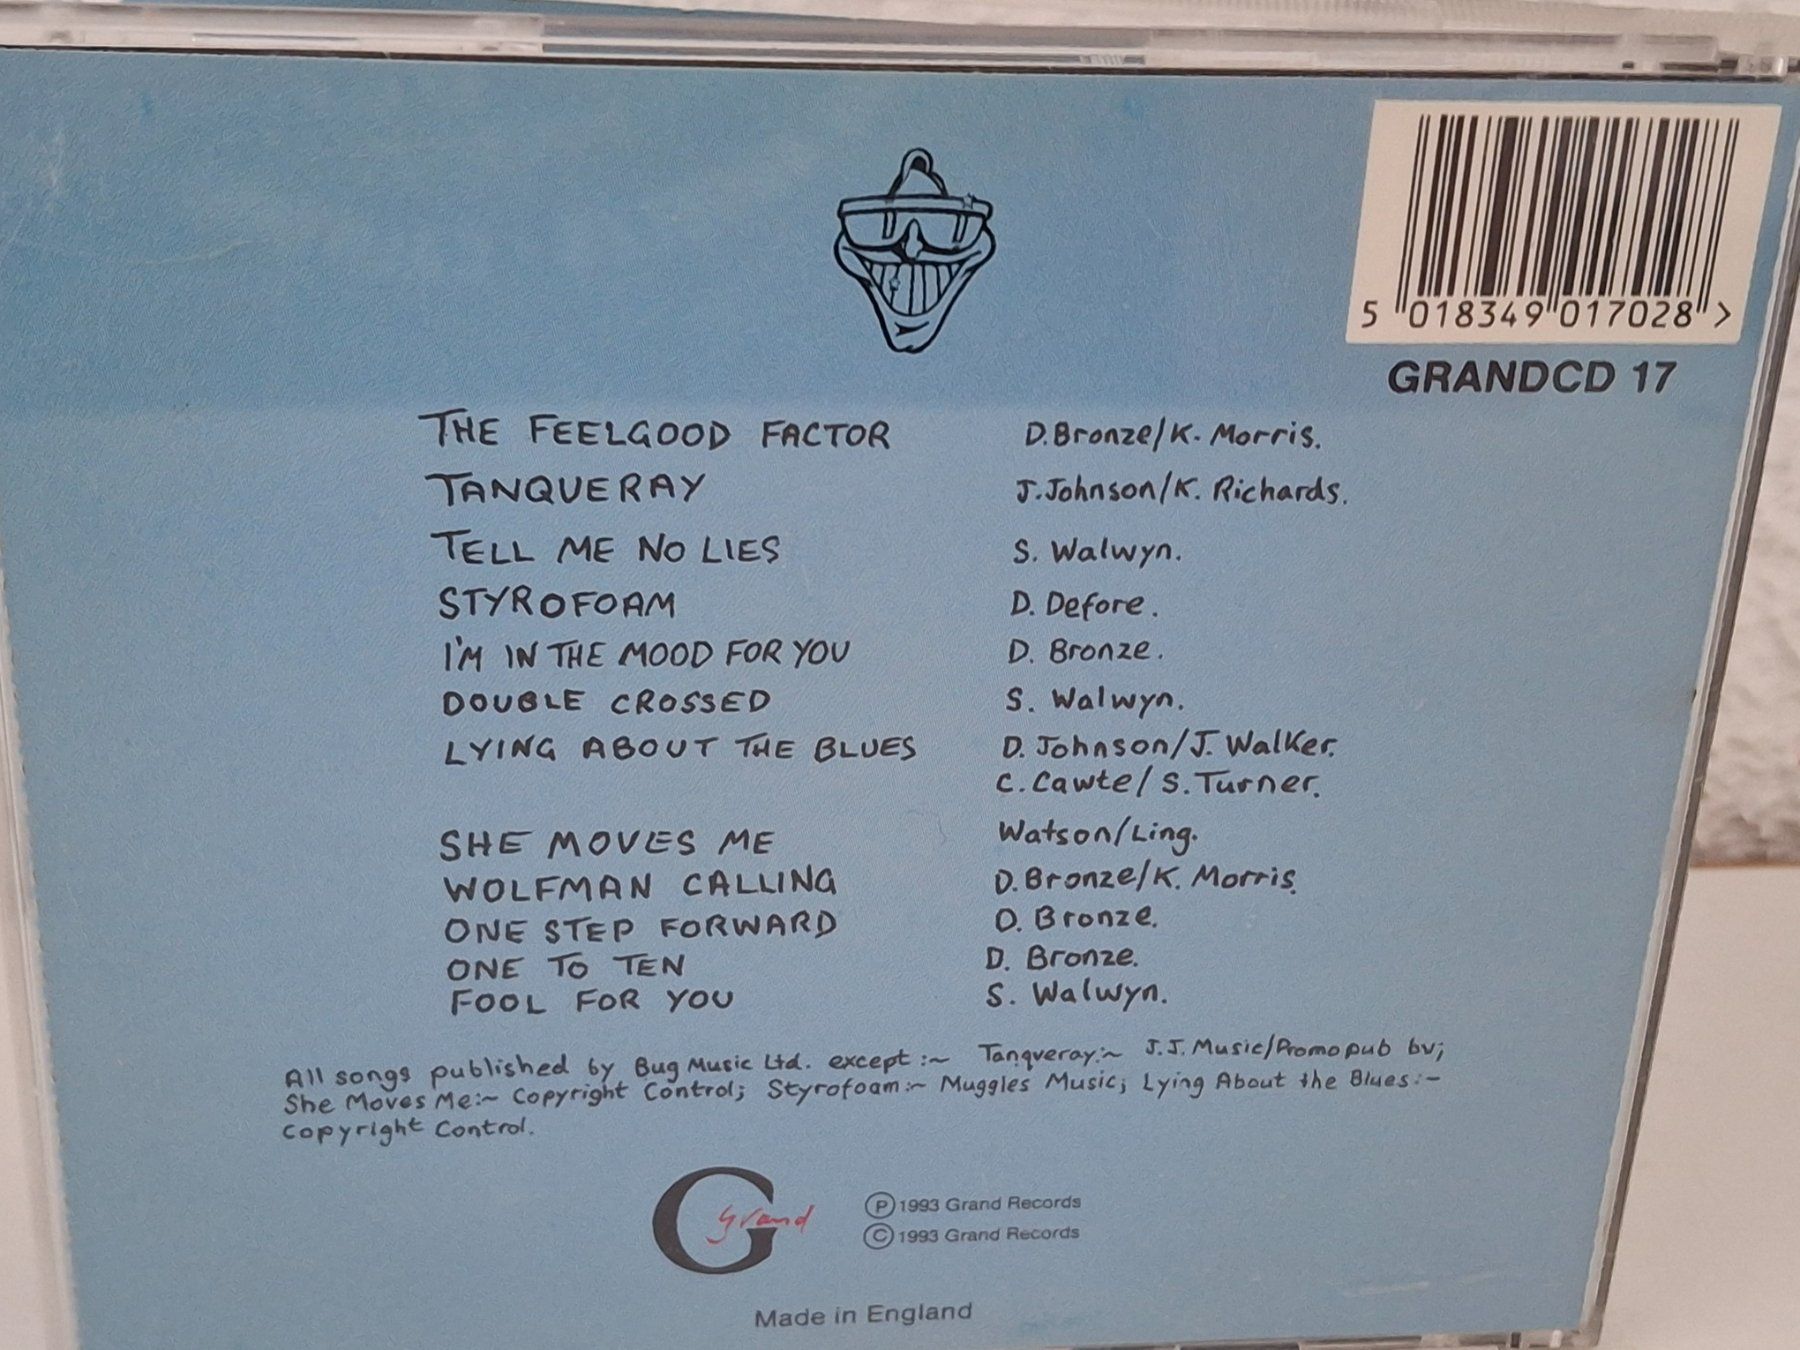 5 018349 017028 >
GRANDCD 17
THE FEELGOOD FACTOR D.Bronze/K. Morris.
TANQUERAY J.Johnson/K. Richards.
TELL ME NO LIES S. Walwyn.
STYROFOAM D. Defore.
I'M IN THE MOOD FOR YOU D. Bronze.
DOUBLE CROSSED S. Walwyn.
LYING ABOUT THE BLUES D. Johnson/J. Walker.
C. Cawte/ S. Turner.
SHE MOVES ME Watson/Ling.
WOLFMAN CALLING D. Bronze/K. Morris.
ONE STEP FORWARD D. Bronze.
ONE TO TEN D. Bronze.
FOOL FOR YOU S. Walwyn.
All songs published by Bug Music Ltd. except :~ Tanqueray:~ J.J. Music/Promopub bv;
She Moves Me:~ Copyright Control; Styrofoam:~ Muggles Music; Lying About the Blues:~
Copyright Control.
G grand
Ⓟ 1993 Grand Records
© 1993 Grand Records
Made in England